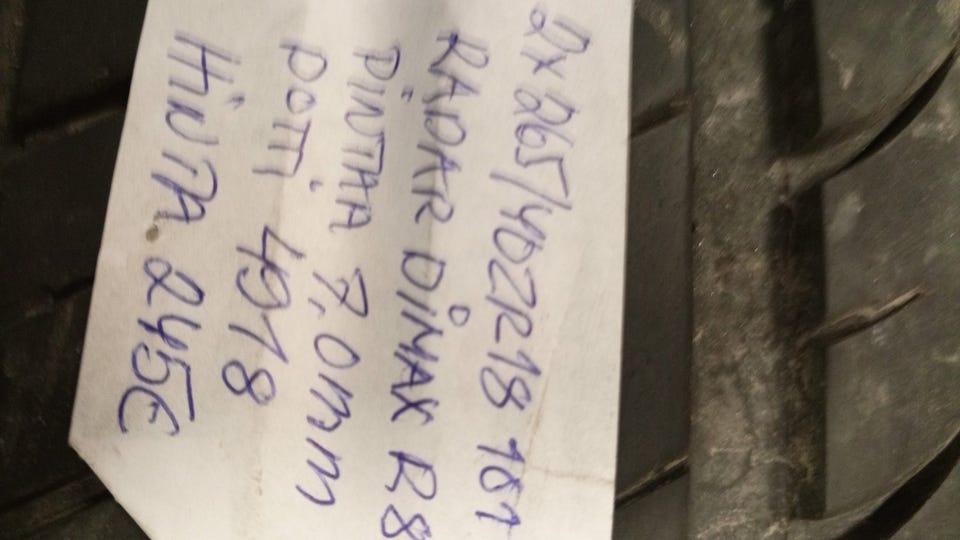 2x265/40ZR18 101
RADAR DiMAX R8
PiNTAA 7,0mm
DOTTi 4918
HiNTA 245€